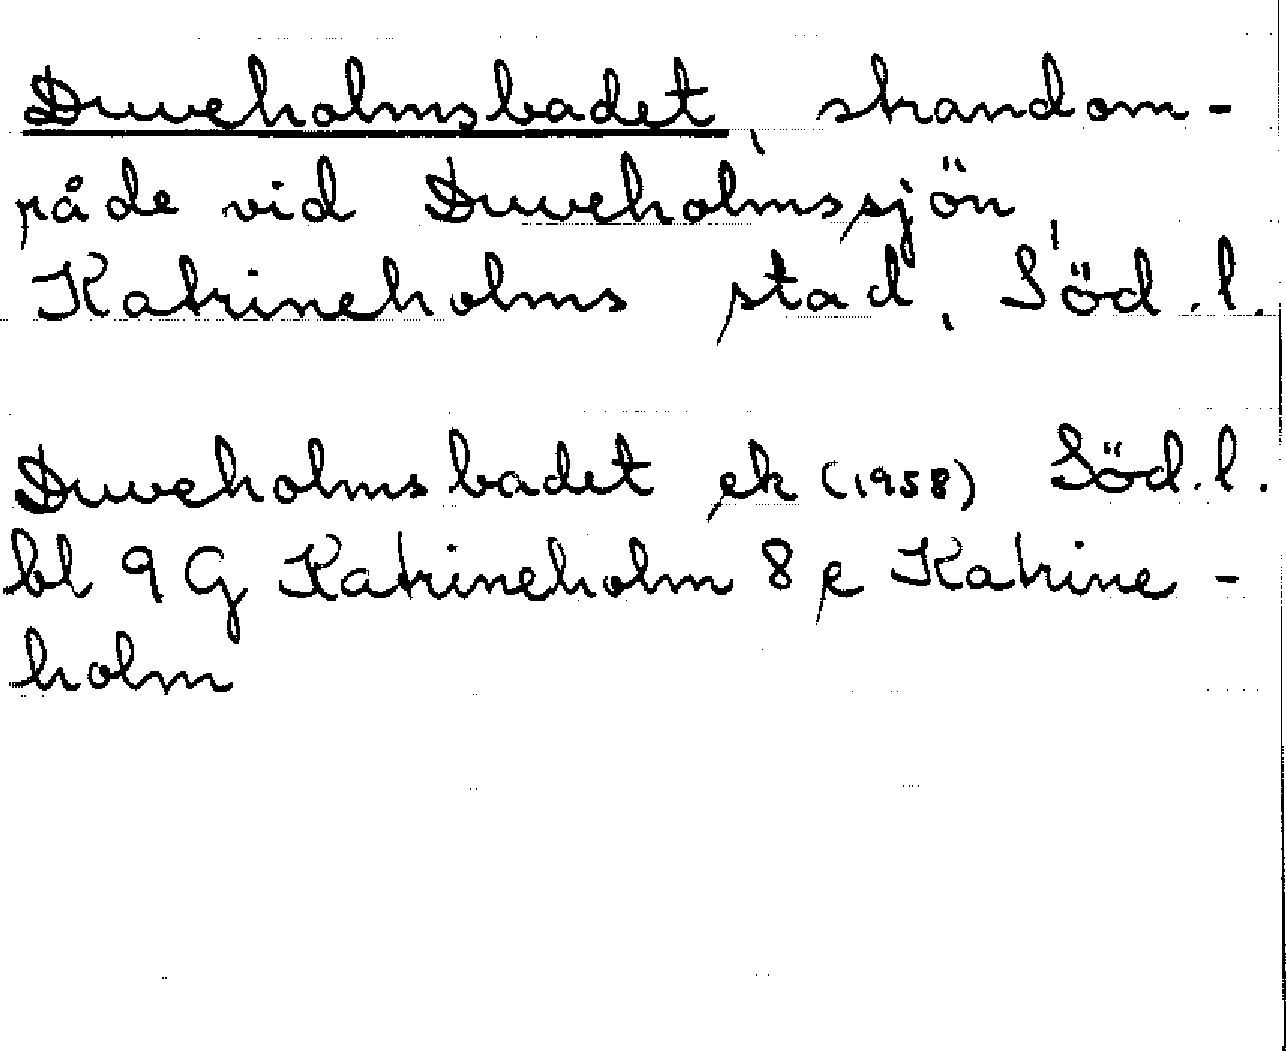 Duveholmsbadet, strandom-
råde vid Duveholmssjön,
Katrineholms stad, Söd.l.
Duveholmsbadet ek (1958) Söd.l.
bl 9G Katrineholm 8 e Katrine-
holm